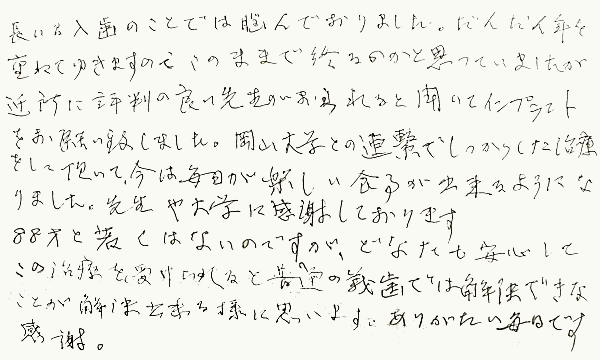 長い間入歯のことでは悩んでおりました。だんだん年を
重ねてゆきますのでこのままで終るのかと思っていましたが
近所に評判の良い先生がおられると聞いてインプラント
をお願い致しました。岡山大学との連繋でしっかりした治療
をして頂いて、今は毎日が楽しい食事が出来るようにな
りました。先生や大学に感謝しております
88才と若くはないのですが、どなたでも安心して
この治療を受けられると普通の義歯では解決できな
ことが解決出来る様に思います。ありがたい毎日です
感謝。